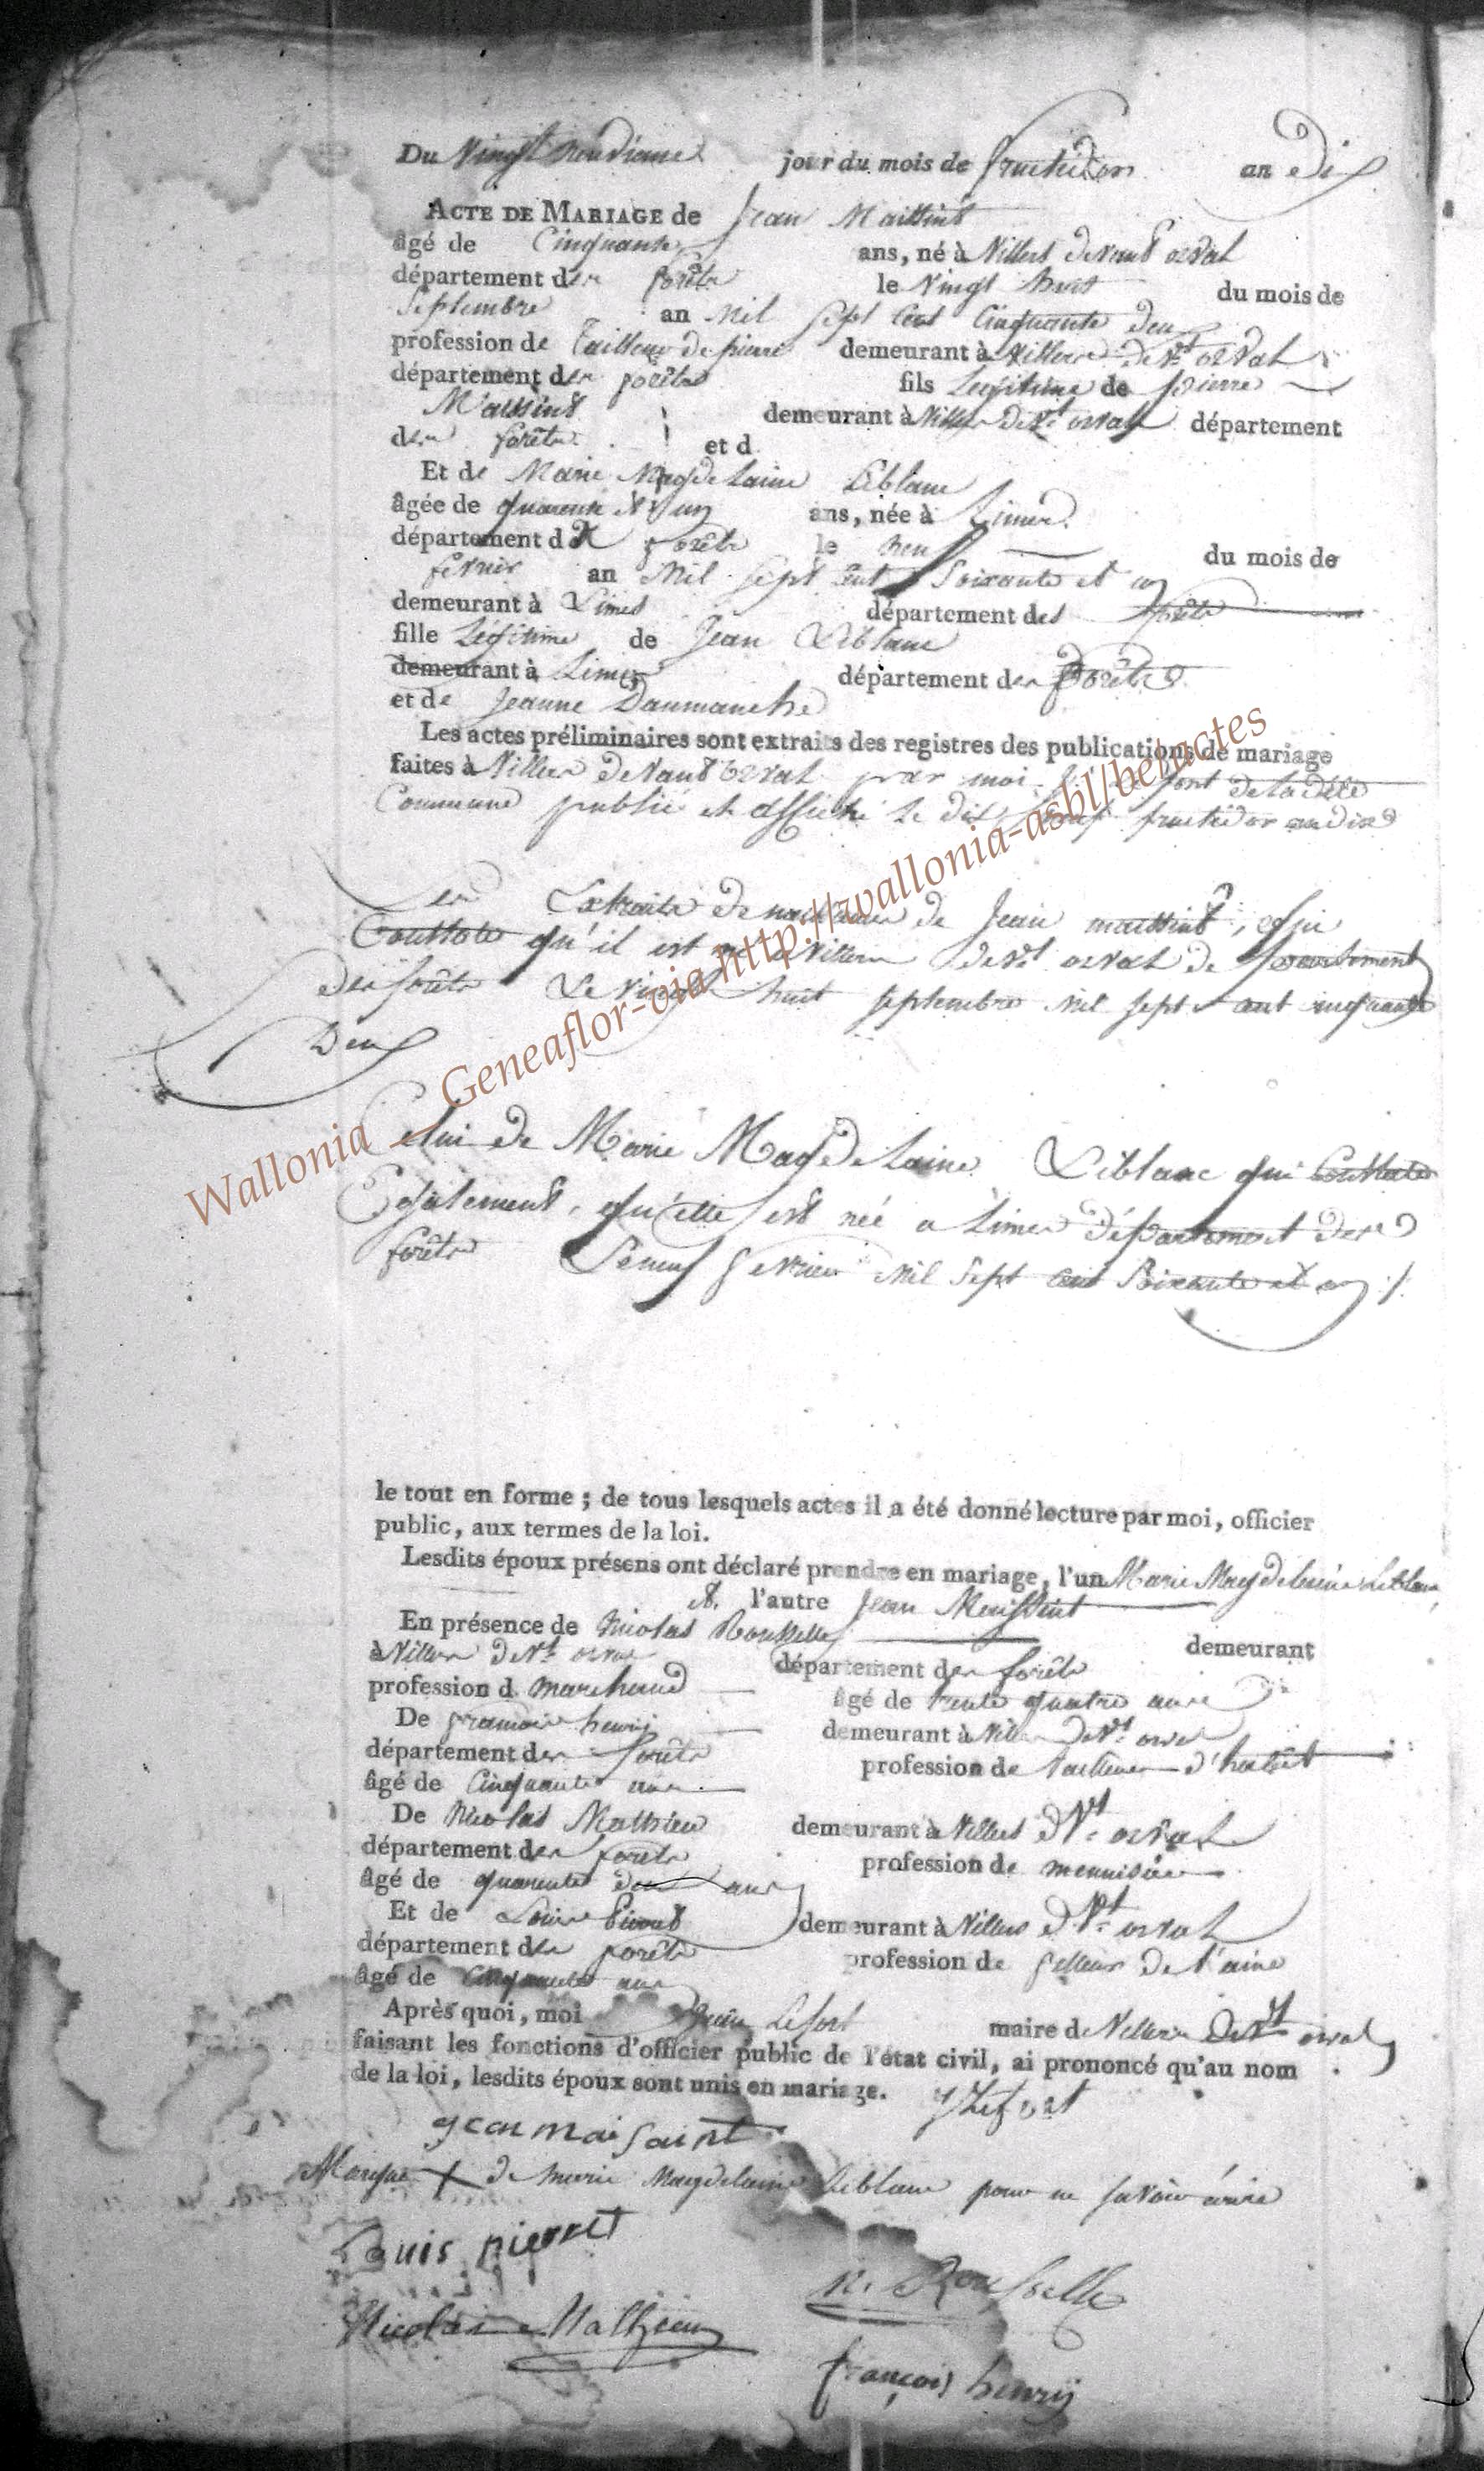 Du Vingt neuvieme jour du mois de fructidor an Dix
ACTE DE MARIAGE de Jean Maissint
âgé de Cinquante ans, né à Villers devant orval
département des forêts le Vingt huit du mois de
Septembre an Mil Sept Cent Cinquante deux
profession de Tailleur de pierre demeurant à Villers devt orval
département des forêts fils Legitime de pierre
Maissint demeurant à Villers devt orval département
des forêts et d
Et de Marie Magdelaine Leblanc
âgée de quarente et un ans, née à Limes
département des forêts le neuf du mois de
fevrier an Mil Sept Cent Soixante et un
demeurant à Limes département des forêts
fille Légitime de Jean Leblanc
demeurant à Limes département des forêts
et de Jeanne Daumanche
Les actes préliminaires sont extraits des registres des publications de mariage
faites à Villers devant orval par moi fort de ladite
Commune publié et affiché le dix fructidor an dix
Les Extraits de naissances de Jean maissint, qui
Constate qu'il est né a Villers devt orval departement
des forêts Le vingt huit septembre mil sept cent cinquante
Deux
Celui de Marie Magdelaine Leblanc qui Constate
Egalement, qu'elle est née a Limes département des
forêts Le neuf fevrier mil Sept cent Soixante et un ./.
le tout en forme ; de tous lesquels actes il a été donné lecture par moi, officier
public, aux termes de la loi.
Lesdits époux présens ont déclaré prendre en mariage, l'un Marie Magdelaine Leblanc
et. l'autre Jean Maissint
En présence de nicolas Rousselle demeurant
à Villers devt orval département des forêts
profession d marchand âgé de trente quatre ans
De francois henrij demeurant à Villers devt orval
département des forêts profession de tailleur d'habit
âgé de Cinquante ans
De Nicolas Mathieu demeurant à Villers dvt orval
département des forêts profession de menuisier
âgé de quarente deux ans
Et de Louis Pierret demeurant à Villers dvt orval
département des forêts profession de filleur de laine
âgé de Cinquante ans
Après quoi, moi Jean Lefort maire de Villers devt orval
faisant les fonctions d'officier public de l'état civil, ai prononcé qu'au nom
de la loi, lesdits époux sont unis en mariage. J Lefort
jean maisaint
Marque + de marie Magdelaine Leblanc pour ne savoir écrire
Louis pierret
N. Rousselle
Nicolas Mathieu
françois henrij
Wallonia _ Geneaflor-via http://wallonia-asbl/belactes